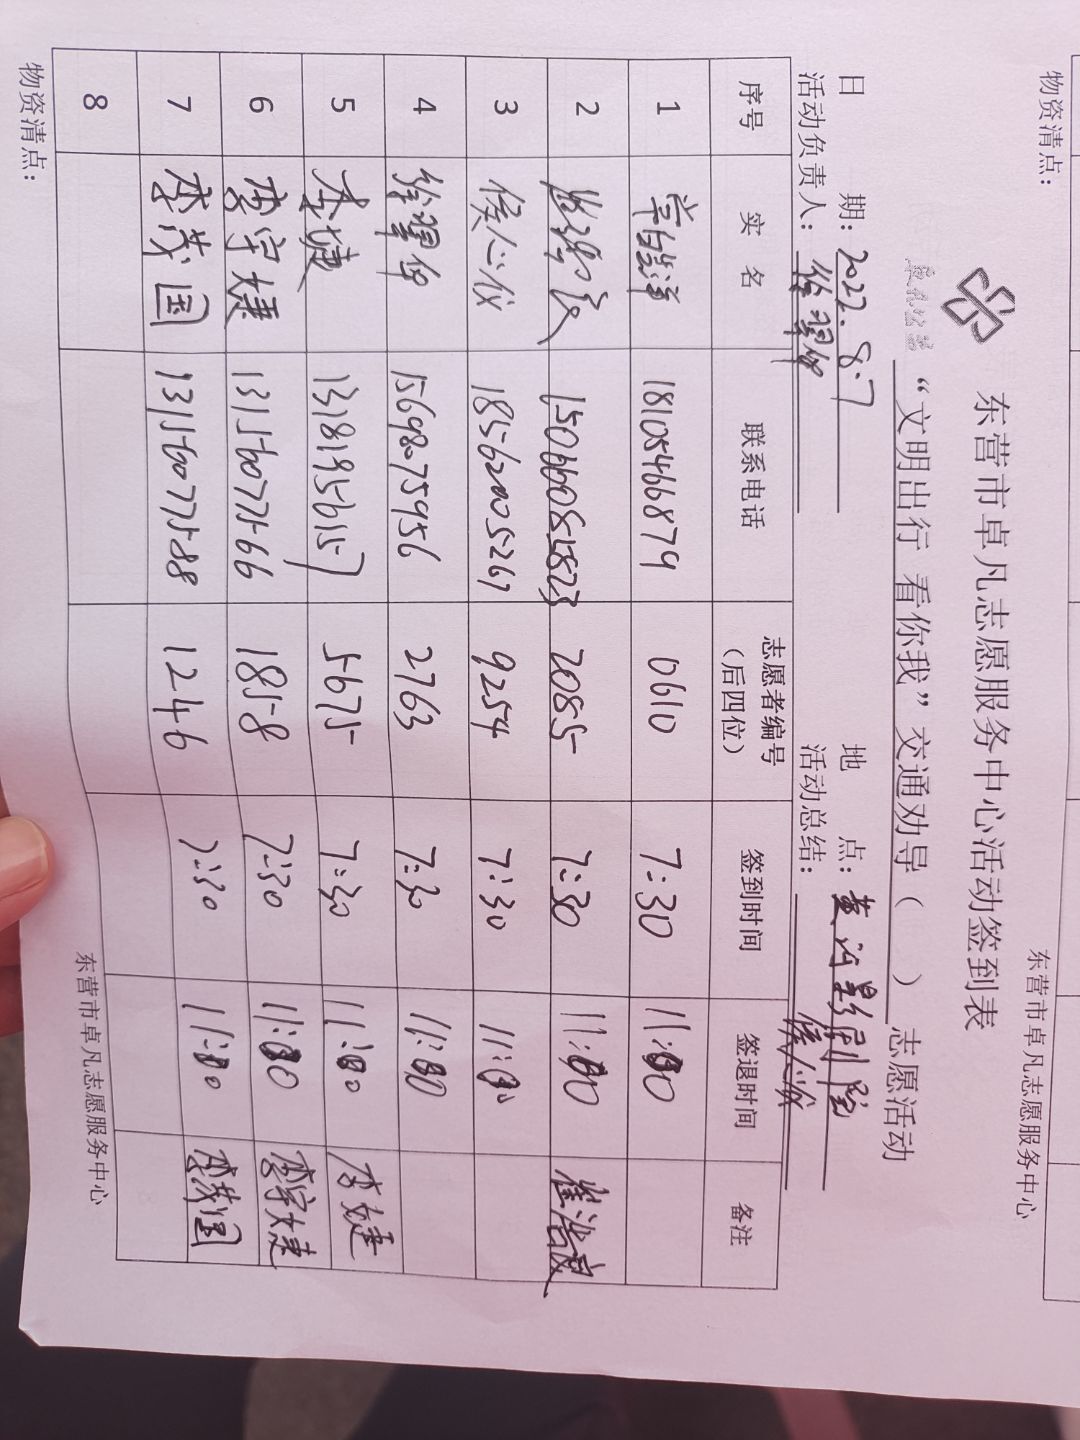 物资清点：
东营市卓凡志愿服务中心
东营市卓凡志愿服务中心活动签到表
“文明出行 看你我”交通劝导（ ）志愿活动
日 期：2022.8.7 地 点：黄河影剧院
活动负责人：徐翠伊 活动总结：侯人仪
序号 实 名 联系电话 志愿者编号（后四位） 签到时间 签退时间 备注
1 18105466879 0610 7:30 11:00
2 2085 7:30 11:00
3 侯人仪 18562005267 9254 7:30 11:00
4 徐翠伊 15698075956 2763 7:30 11:00
5 李婕 5675 7:30 11:00 李婕
6 李宇婕 13156077566 1858 7:30 11:00 李宇婕
7 李茂国 13156077588 1246 7:30 11:00 李茂国
8
物资清点：
东营市卓凡志愿服务中心